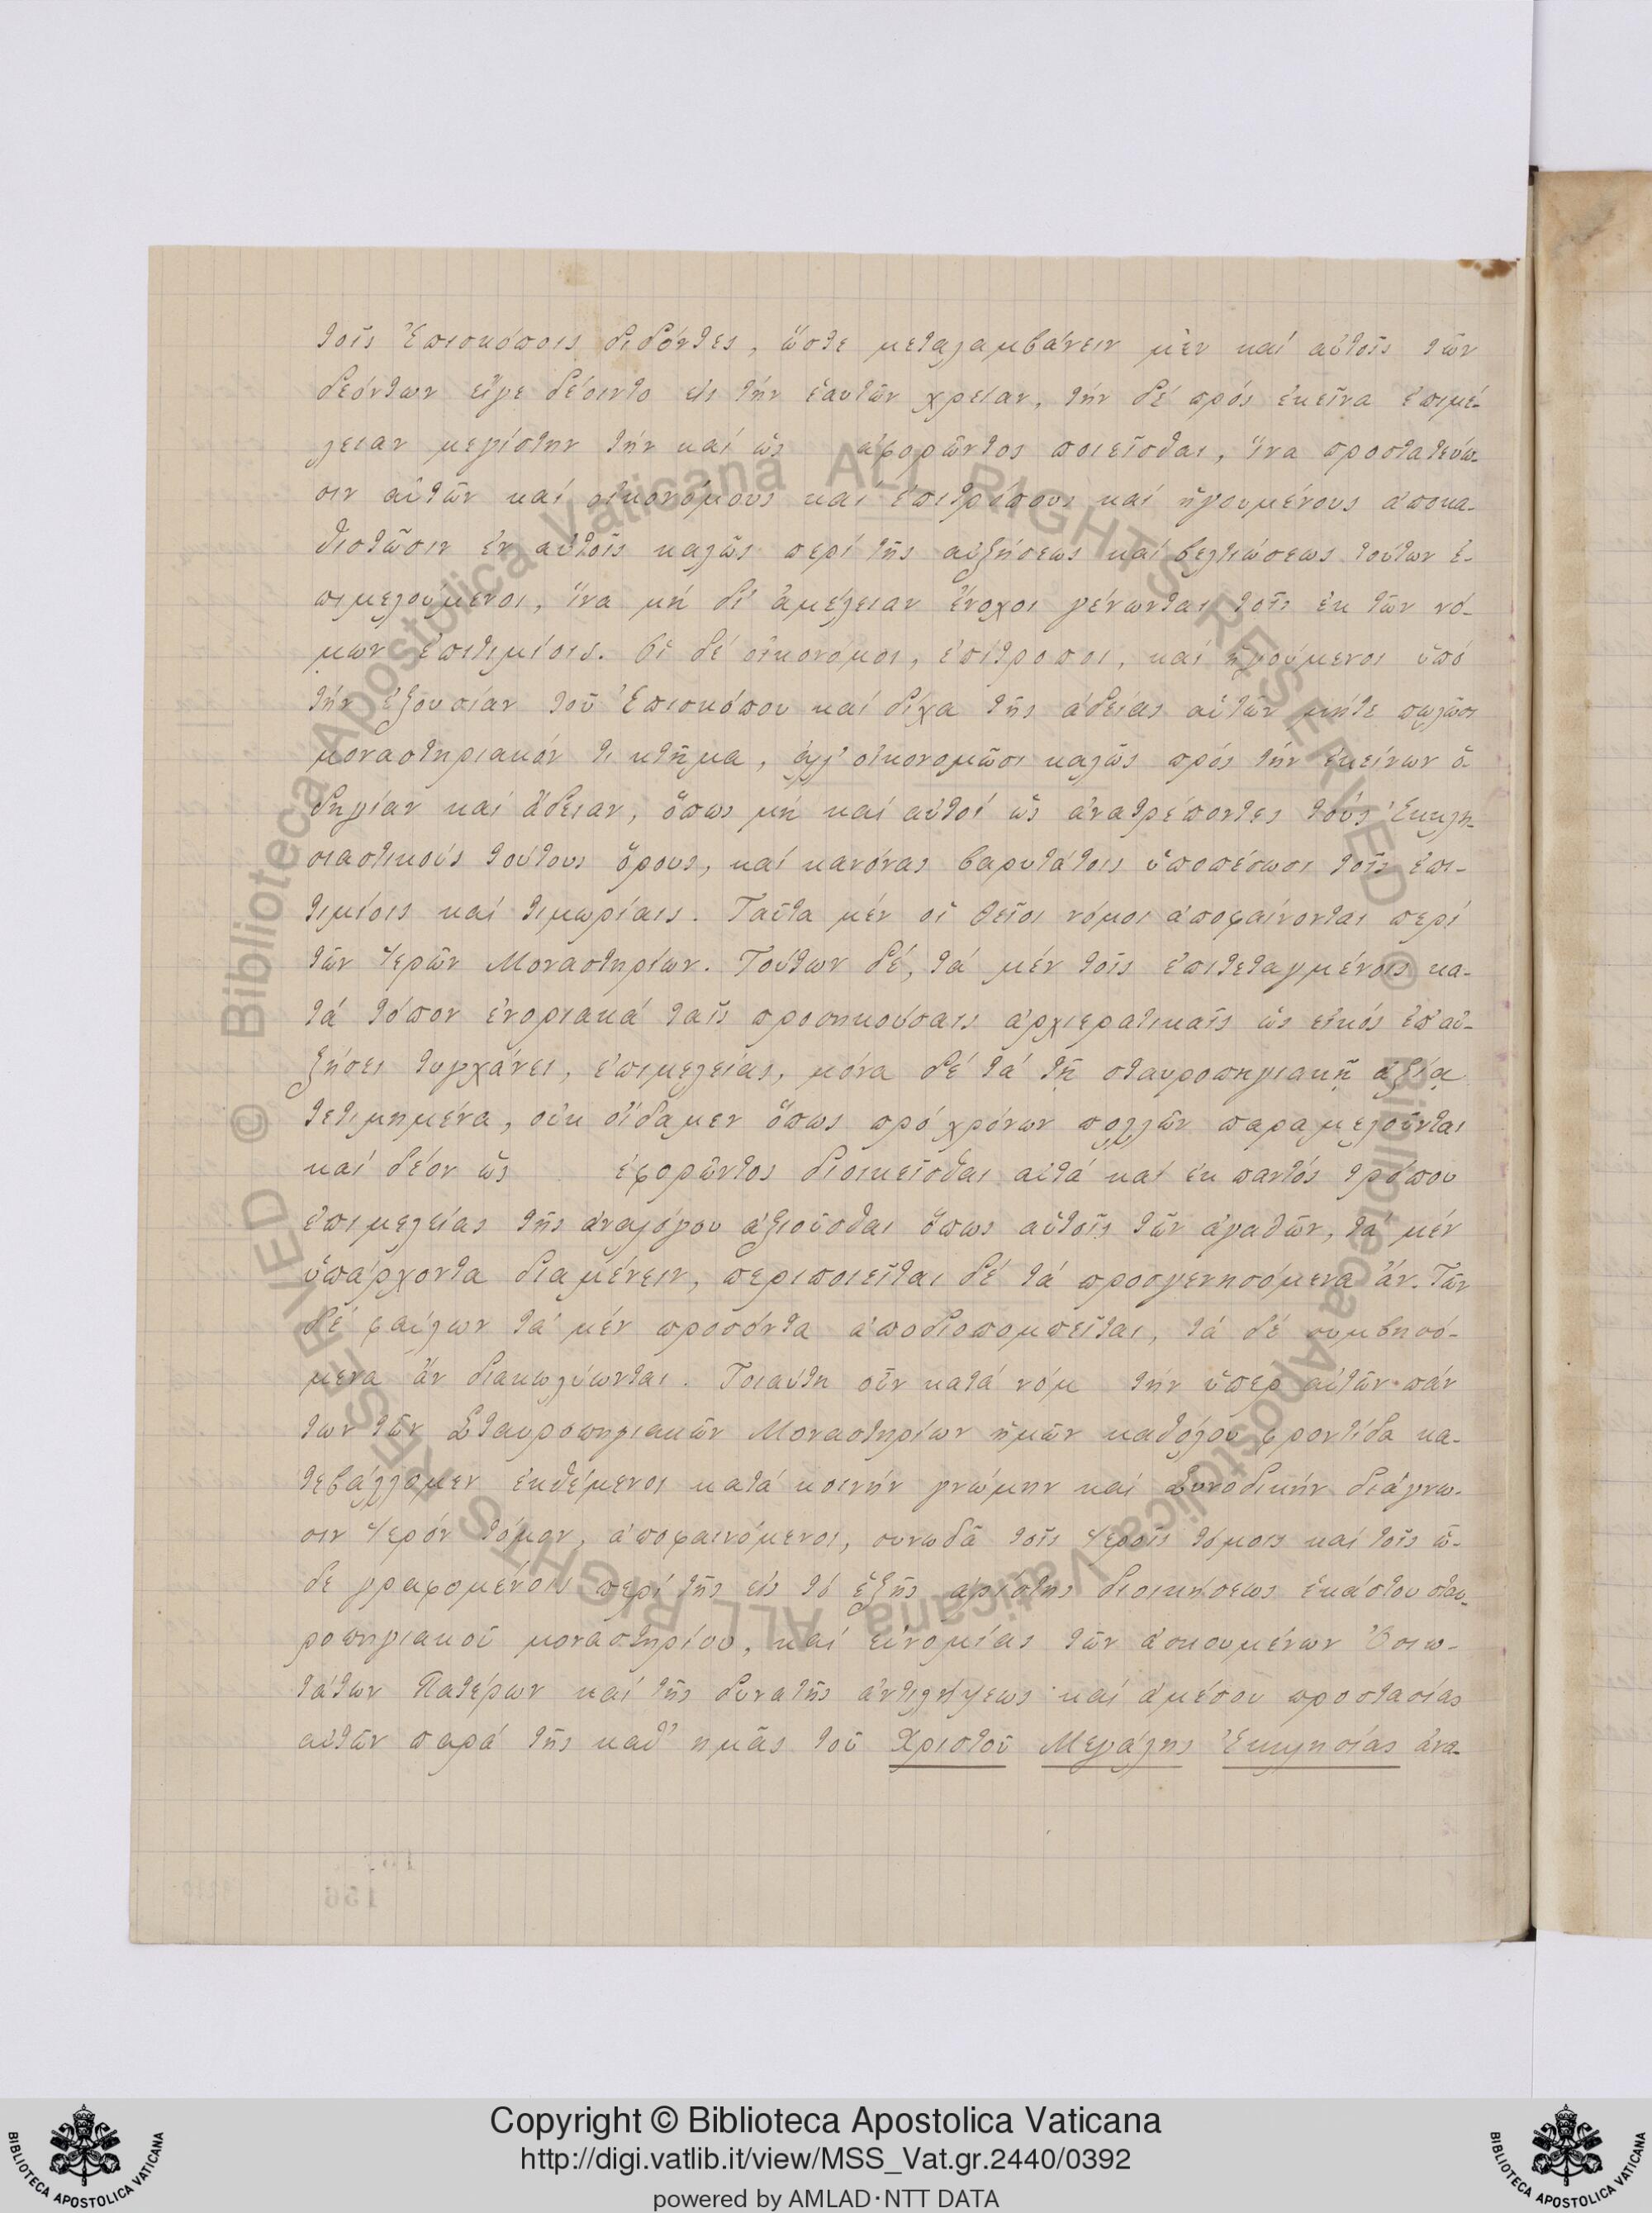 τοῖς Ἐπισκόποις διδόντες, ὥστε μεταλαμβάνειν μὲν καί αὐτοῖς τῶν
δεόντων εἴγε δέοιντο εἰς τήν ἑαυτῶν χρείαν, τήν δέ πρός ἐκεῖνα ἐπιμέ-
λειαν μεγίστην τήν καί ὡς ἀφορῶντος ποιεῖσθαι, ἵνα προστατεύω-
σιν αὐτῶν καί οἰκονόμους καί ἐπιτρόπους καί ἡγουμένους ἀποκα-
θιστῶσιν ἐν αὐτοῖς καλῶς περί τῆς αὐξήσεως καί βελτιώσεως τούτων ἐ-
πιμελούμενοι, ἵνα μή δι' ἀμέλειαν ἔνοχοι γένωνται τοῖς ἐκ τῶν νό-
μων ἐπιτιμίοις. Οἱ δέ οἰκονόμοι, ἐπίτροποι, καί ἡγούμενοι ὑπό
τήν ἐξουσίαν τοῦ Ἐπισκόπου καί δίχα τῆς ἀδείας αὐτῶν μήτε πωλῶσι
μοναστηριακόν τι κτῆμα, ἀλλ' οἰκονομῶσι καλῶς πρός τήν ἐκείνων ὁ-
δηγίαν καί ἄδειαν, ὅπως μή καί αὐτοί ὡς ἀνατρέποντες τούς Ἐκκλη-
σιαστικούς τούτους ὅρους, καί κανόνας βαρυτάτοις ὑποπέσωσι τοῖς ἐπι-
τιμίοις καί τιμωρίαις. Ταῦτα μέν οἱ θεῖοι νόμοι ἀποφαίνονται περί
τῶν Ἱερῶν Μοναστηρίων. Τούτων δέ, τά μέν τοῖς ἐπιτεταγμένοις κα-
τά τόπον ἐνοριακά ταῖς προσηκούσαις ἀρχιερατικαῖς ὡς εἰκός ἐπ' αὐ-
ξήσει τυγχάνει, ἐπιμελείας, μόνα δέ τά τῇ σταυροπηγιακῇ ἀξίᾳ
τετιμημένα, οὐκ οἴδαμεν ὅπως πρό χρόνων πολλῶν παραμελοῦνται
καί δέον ὡς ἐφορῶντος διοικεῖσθαι αὐτά καί ἐκ παντός τρόπου
ἐπιμελείας τῆς ἀναλόγου ἀξιοῦσθαι ὅπως αὐτοῖς τῶν ἀγαθῶν, τά μέν
ὑπάρχοντα διαμένειν, περιποιεῖται δέ τά προσγενησόμενα ἄν. Τῶν
δέ φαύλων τά μέν προσόντα ἀποδιοπομπεῖται, τά δέ συμβησό-
μενα ἄν διακωλύωνται. Τοιαύτη οὖν κατά νόμ τήν ὑπέρ αὐτῶν πάν
των τῶν Σταυροπηγιακῶν Μοναστηρίων ἡμῶν καθόλου φροντίδα κα-
τεβάλλομεν ἐκθέμενοι κατά κοινήν γνώμην καί Συνοδικήν διάγνω-
σιν Ἱερόν τόμον, ἀποφαινόμενοι, συνωδᾶ τοῖς Ἱεροῖς τόμοις καί τοῖς ὧ-
δε γραφομένοις περί τῆς εἰς τό ἑξῆς ἀρίστης διοικήσεως ἑκάστου σταυ-
ροπηγιακοῦ μοναστηρίου, καί εὐνομίας τῶν ἀσκουμένων Ὁσιω-
τάτων Πατέρων καί τῆς δυνατῆς ἀντιλήψεως καί ἀμέσου προστασίας
αὐτῶν παρά τῆς καθ' ημᾶς τοῦ Χριστοῦ Μεγάλης Ἐκκλησίας ἀνα-
Copyright © Biblioteca Apostolica Vaticana
http://digi.vatlib.it/view/MSS_Vat.gr.2440/0392
powered by AMLAD·NTT DATA